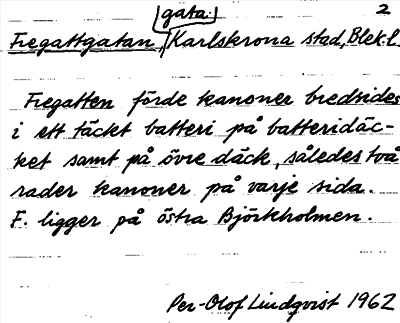 gata 2
Fregattgatan, Karlskrona stad, Blek.l.
Fregatten förde kanoner bredsides
i ett täckt batteri på batteridäc-
ket samt på övre däck, således två
rader kanoner på varje sida.
F. ligger på östra Björkholmen.
Per-Olof Lindqvist 1962